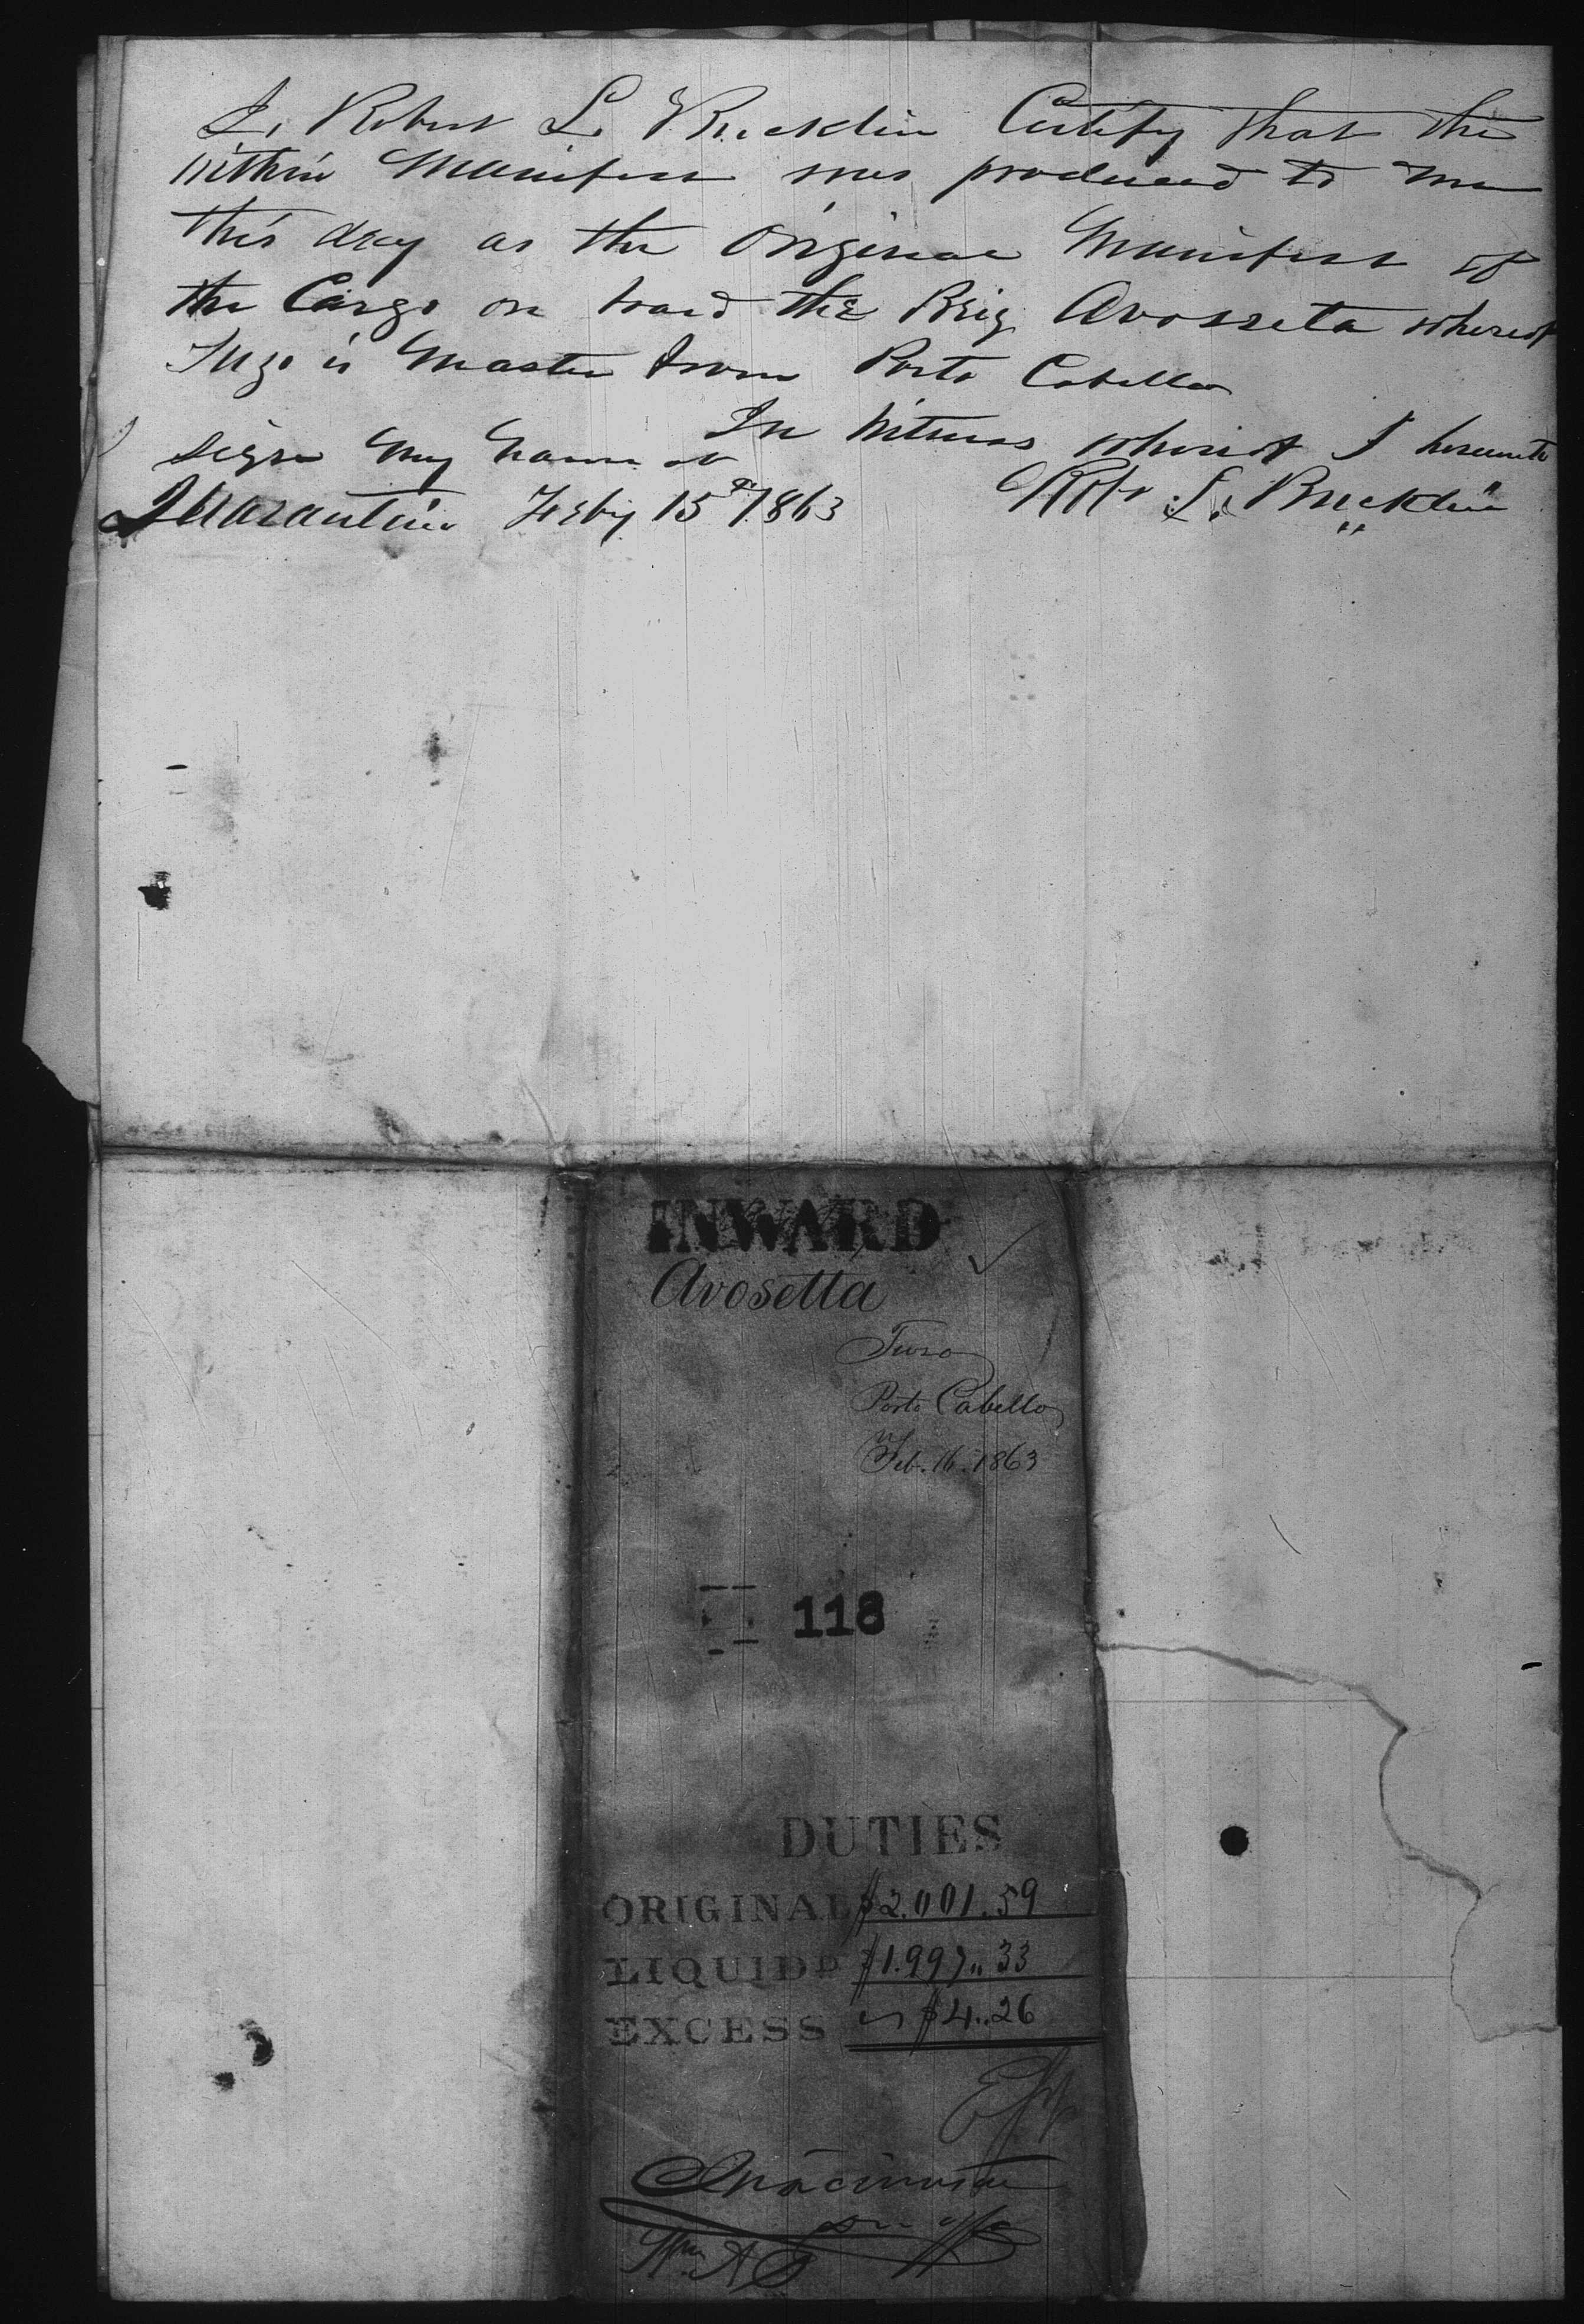 I, Robert L. Bucklin Certify that the
within Manifest was produced to me
this day as the Original Manifest of
the Cargo on board the Brig Avosseta whereof
Tuzo is Master from Porto Cabello
In Witness whereof I hereunto
sign my name at
Quarantine Feby 15th 1863 Robt L. Bucklin
INWARD
Avosetta
Tuzo
Porto Cabello
Feb. 16. 1863
118
DUTIES
ORIGINAL $2.001.59
LIQUIDD $1.997.. 33
EXCESS $4..26